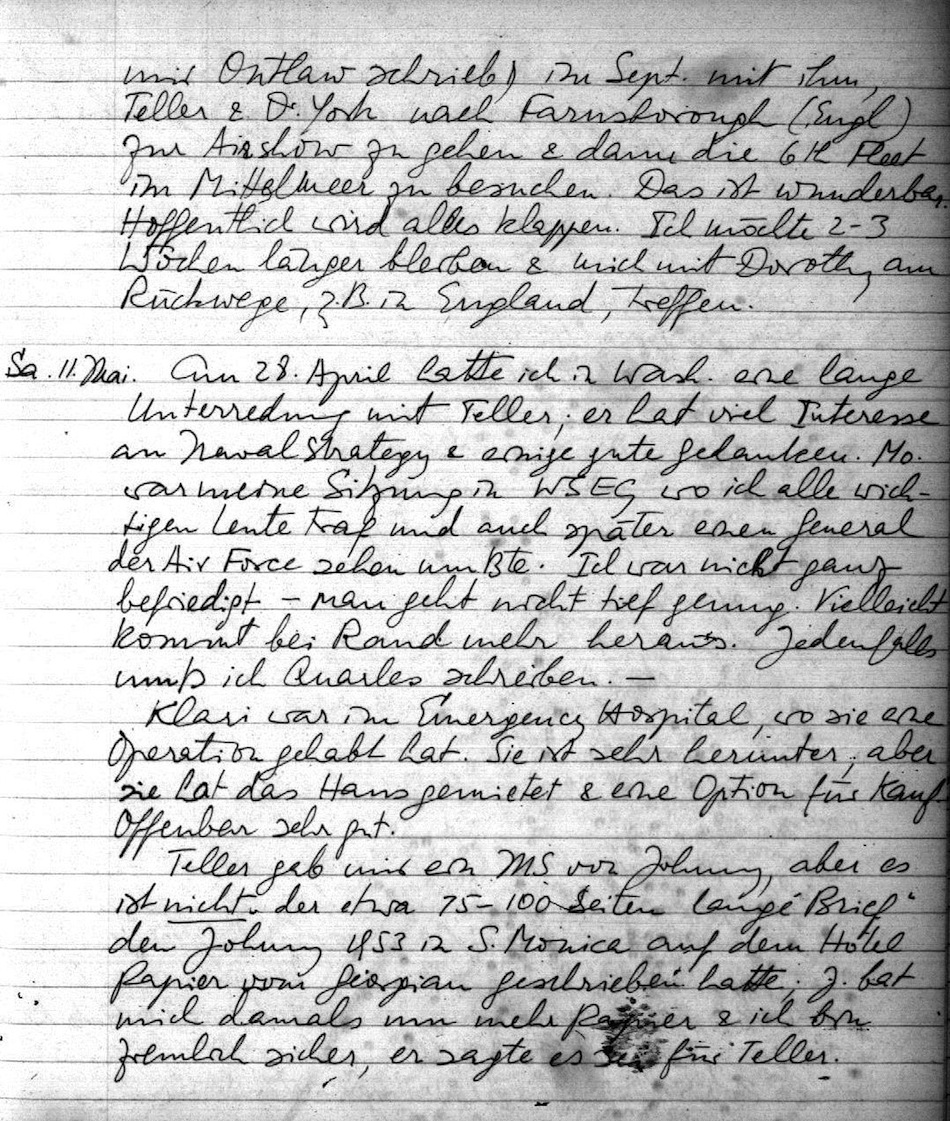 mir Outlaw schrieb) im Sept. mit ihm,
Teller & Dr. York nach Farnsborough (Engl)
zur Airshow zu gehen & dann die 6th Fleet
im Mittelmeer zu besuchen. Das ist wunderbar.
Hoffentlich wird alles klappen. Ich möchte 2-3
Wochen länger bleiben & mich mit Dorothy am
Rückwege, z.B. in England, treffen.
Sa. 11. Mai. Am 28. April hatte ich in Wash. eine lange
Unterredung mit Teller; er hat viel Interesse
an Naval Strategy & einige gute Gedanken. Mo.
war meine Sitzung in WSEG, wo ich alle wich-
tigen Leute traf und auch später einen General
der Air Force sehen mußte. Ich war nicht ganz
befriedigt – man geht nicht tief genug. Vielleicht
kommt bei Rand mehr heraus. Jedenfalls
muß ich Quarles schreiben. —
Klari war im Emergency Hospital, wo sie eine
Operation gehabt hat. Sie ist sehr herunter; aber
sie hat das Haus gemietet & eine Option für Kauf.
Offenbar sehr gut.
Teller gab mir ein MS von Johnny, aber es
ist nicht der etwa 75-100 Seiten lange "Brief"
den Johnny 1953 in S. Monica auf dem Hotel
Papier vom Georgian geschrieben hatte. J. bat
mich damals um mehr Papier & ich bin
ziemlich sicher, er sagte es sei für Teller.